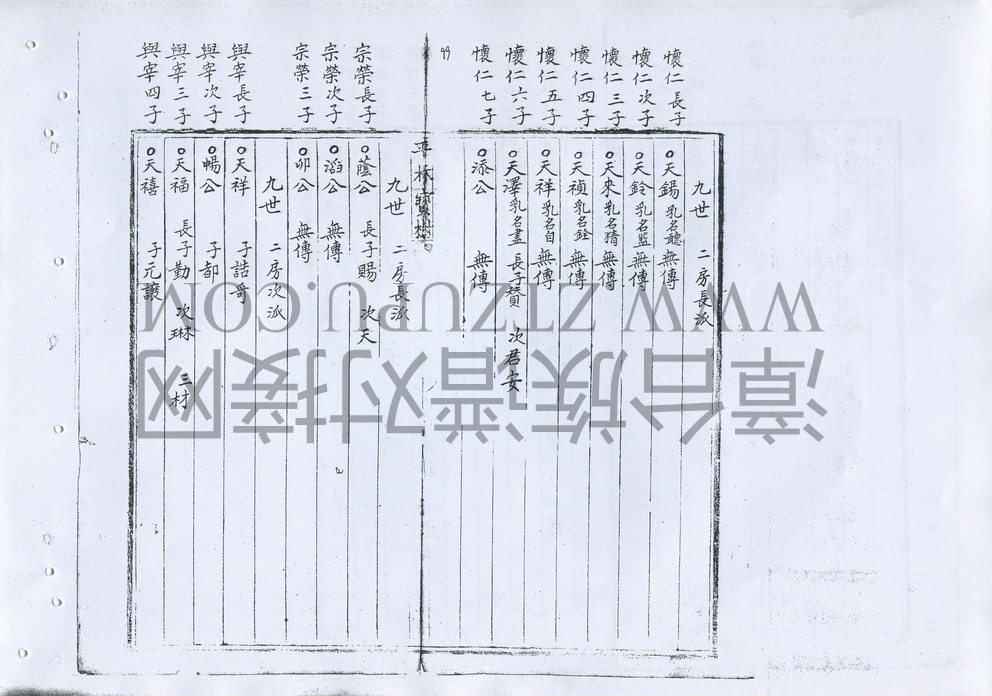 九世 二房長派
懷仁長子 天錫 乳名聽 無傳
懷仁次子 天鈴 乳名籃 無傳
懷仁三子 天來 乳名猜 無傳
懷仁四子 天禎 乳名銓 無傳
懷仁五子 天祥 乳名自 無傳
懷仁六子 天澤 乳名盡 長子贊 次君安
懷仁七子 添公 無傳
九世 二房長派
宗榮長子 蔭公 長子賜 次天
宗榮次子 滔公 無傳
宗榮三子 卯公 無傳
九世 二房次派
與宰長子 天祥 子誥哥
與宰次子 暢公 子都
與宰三子 天福 長子勤 次琳 三材
與宰四子 天禧 子元讓
WWW.ZTZUPU.COM
漳台族谱对接网